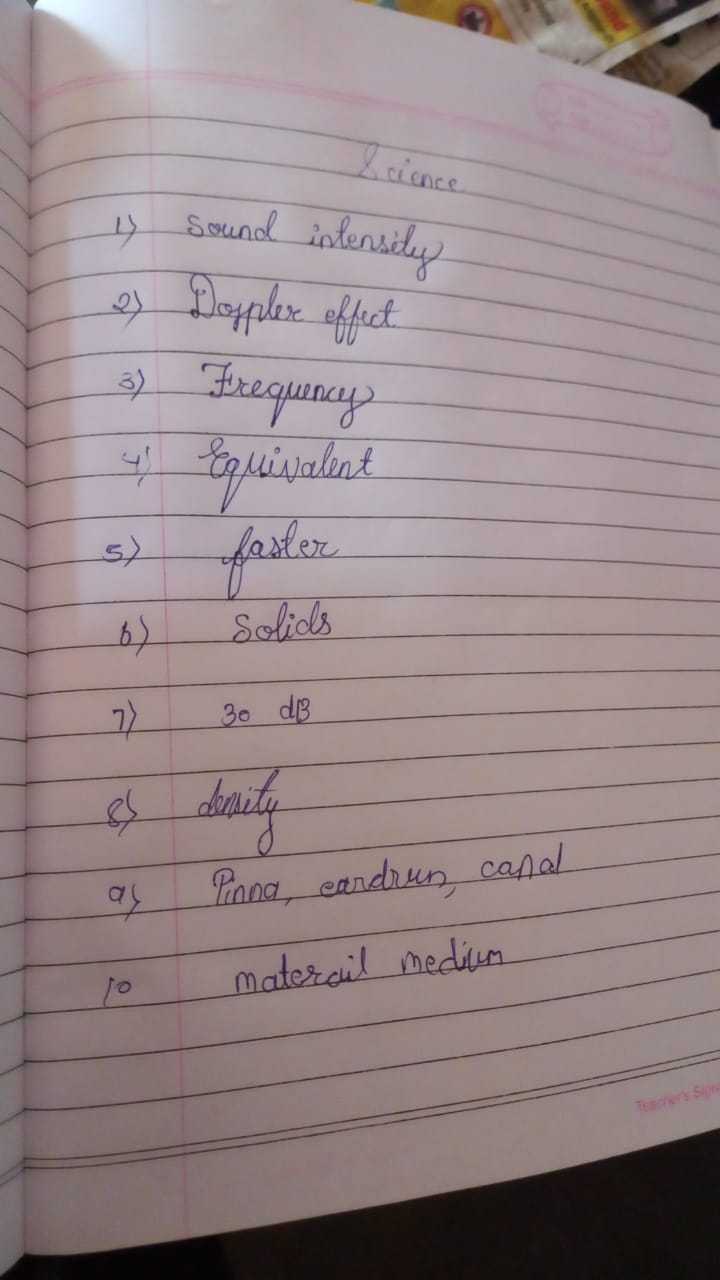 Science
1) Sound intensity
2) Doppler effect
3) Frequency
4) Equivalent
5) faster
6) Solids
7) 30 dB
8) density
9) Pinna, eardrum, canal
10 materail medium
Teacher's